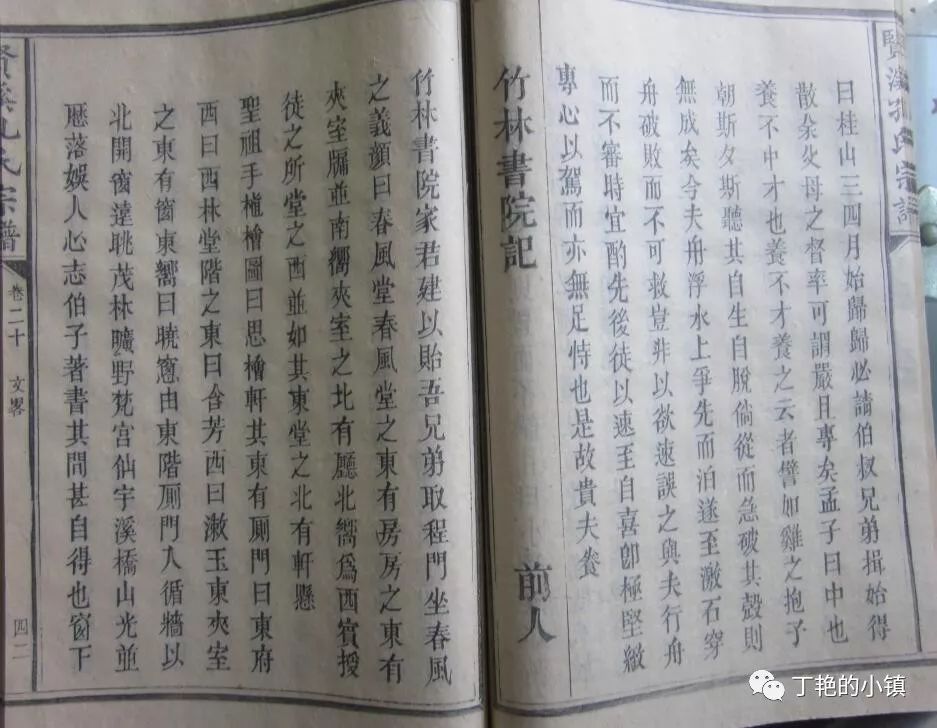 曰桂山三四月始歸歸必請伯叔兄弟揖始得
散余父母之督率可謂嚴且專矣孟子曰中也
養不中才也養不才養之云者譬如雞之抱子
朝斯夕斯聽其自生自脫倘從而急破其殼則
無成矣今夫舟浮水上爭先而泊遂至激石穿
舟破敗而不可救豈非以欲速誤之與夫行舟
而不審時宜酌先後徒以速至自喜卽極堅緻
專心以駕而亦無足恃也是故貴夫養
竹林書院記 前人
竹林書院家君建以貽吾兄弟取程門坐春風
之義顏曰春風堂春風堂之東有房房之東有
夾室牖並南嚮夾室之北有廳北嚮爲西賓授
徒之所堂之西並如其東堂之北有軒懸
聖祖手植檜圖曰思檜軒其東有廂門曰東府
西曰西林堂階之東曰含芳西曰漱玉東夾室
之東有窗東嚮曰曉窻由東階廂門入循牆以
北開窗遠眺茂林曠野梵宫仙宇溪橋山光並
歷落娛人心志伯子著書其間甚自得也窗下
賢溪孔氏宗譜
卷二十 文畧
四二
賢溪孔氏宗譜
丁艳的小镇